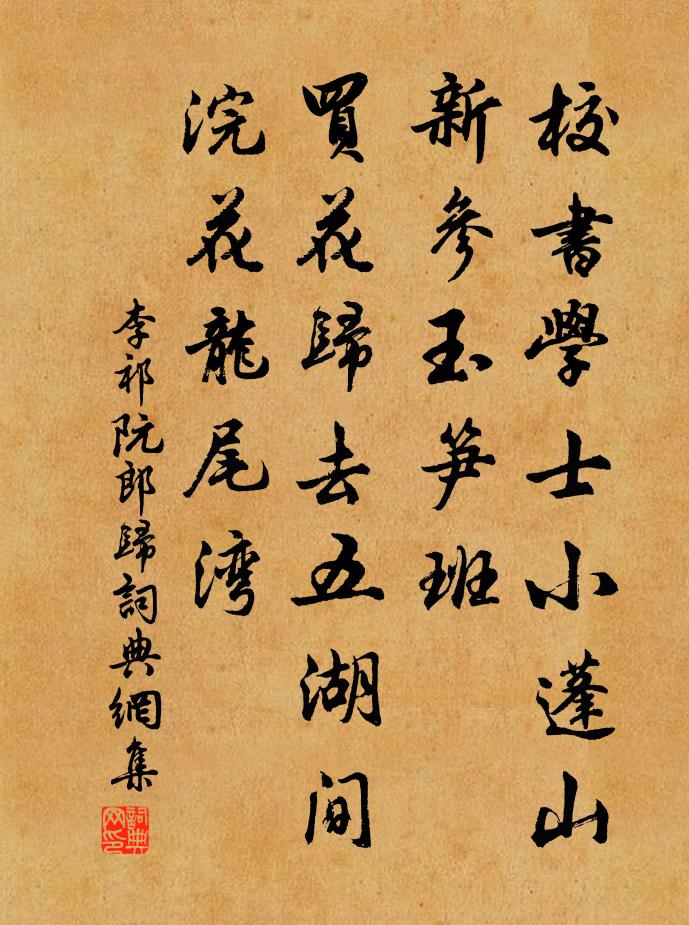 校書學士小蓬山
新參玉筍班
買花歸去五湖間
浣花龍尾湾
李祁阮郎歸詞典網集
詞典网印